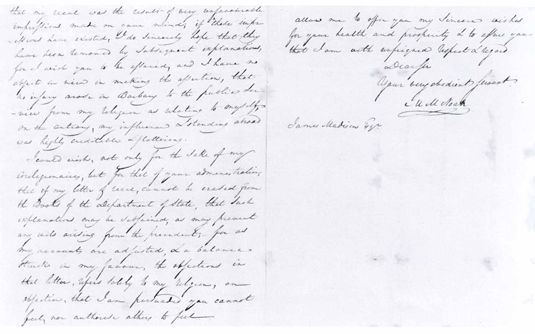 that my recal was the result of very unfavourable
impressions made on your mind; if those impre
ssions have existed, I do sincerely hope that they
have been removed by subsequent explanations,
for I wish you to be assured, and I have no
object in view in making the assertion, that
no injury arose in Barbary to the public ser
vice from my religion as relating to myself,
on the contrary, my influence & standing abroad
was highly creditable & flattering.
I could wish, not only for the sake of my
coreligionaries, but for that of your administration,
that if my letter of recal, cannot be erased from
the Books of the Department of State, that such
explanations may be subjoined, as may prevent
any evils arising from the precedent; for as
my accounts are adjusted, & a balance
struck in my favour, the objections in
that letter, refers solely to my religion, an
objection, that I am persuaded you cannot
feel, nor authorise others to feel
allow me to offer you my Sincere wishes
for your health and prosperity & to assure you
that I am with unfeigned respect & regard
Dear Sir
Your very obedient Servant
M M Noah
James Madison Esqr